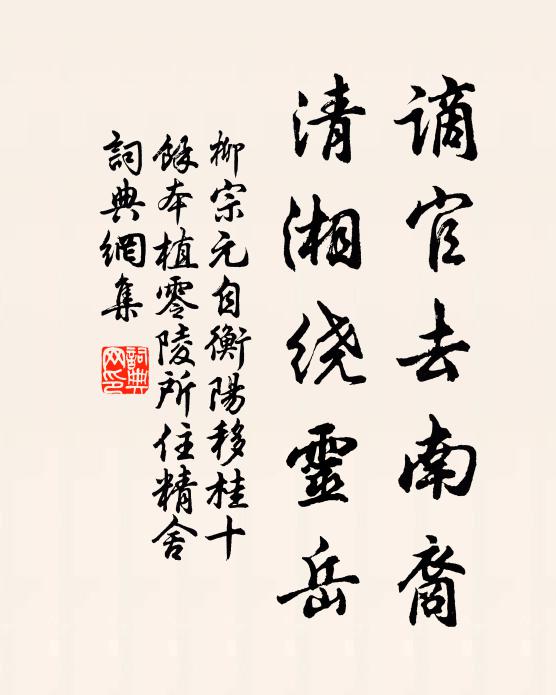 謫官去南裔
清湘绕靈岳
柳宗元自衡陽移桂十
餘本植零陵所住精舍
詞典網集
詞典網印